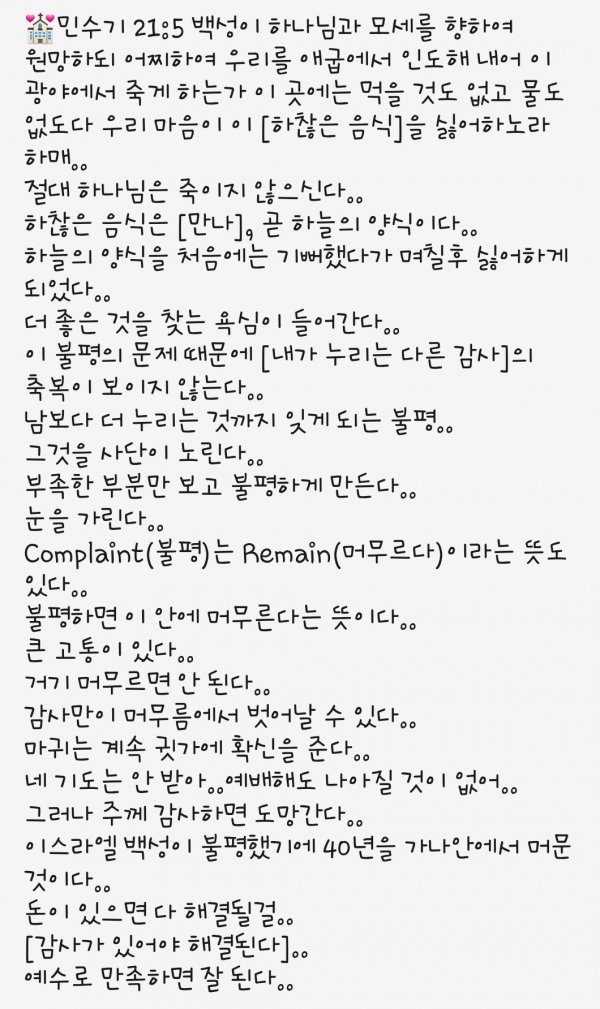 💒민수기 21:5 백성이 하나님과 모세를 향하여
원망하되 어찌하여 우리를 애굽에서 인도해 내어 이
광야에서 죽게 하는가 이 곳에는 먹을 것도 없고 물도
없도다 우리 마음이 이 [하찮은 음식]을 싫어하노라
하매..
절대 하나님은 죽이지 않으신다..
하찮은 음식은 [만나], 곧 하늘의 양식이다..
하늘의 양식을 처음에는 기뻐했다가 며칠후 싫어하게
되었다..
더 좋은 것을 찾는 욕심이 들어간다..
이 불평의 문제 때문에 [내가 누리는 다른 감사]의
축복이 보이지 않는다..
남보다 더 누리는 것까지 잊게 되는 불평..
그것을 사단이 노린다..
부족한 부분만 보고 불평하게 만든다..
눈을 가린다..
Complaint(불평)는 Remain(머무르다)이라는 뜻도
있다..
불평하면 이 안에 머무른다는 뜻이다..
큰 고통이 있다..
거기 머무르면 안 된다..
감사만이 머무름에서 벗어날 수 있다..
마귀는 계속 귓가에 확신을 준다..
네 기도는 안 받아..예배해도 나아질 것이 없어..
그러나 주께 감사하면 도망간다..
이스라엘 백성이 불평했기에 40년을 가나안에서 머문
것이다..
돈이 있으면 다 해결될걸..
[감사가 있어야 해결된다]..
예수로 만족하면 잘 된다..